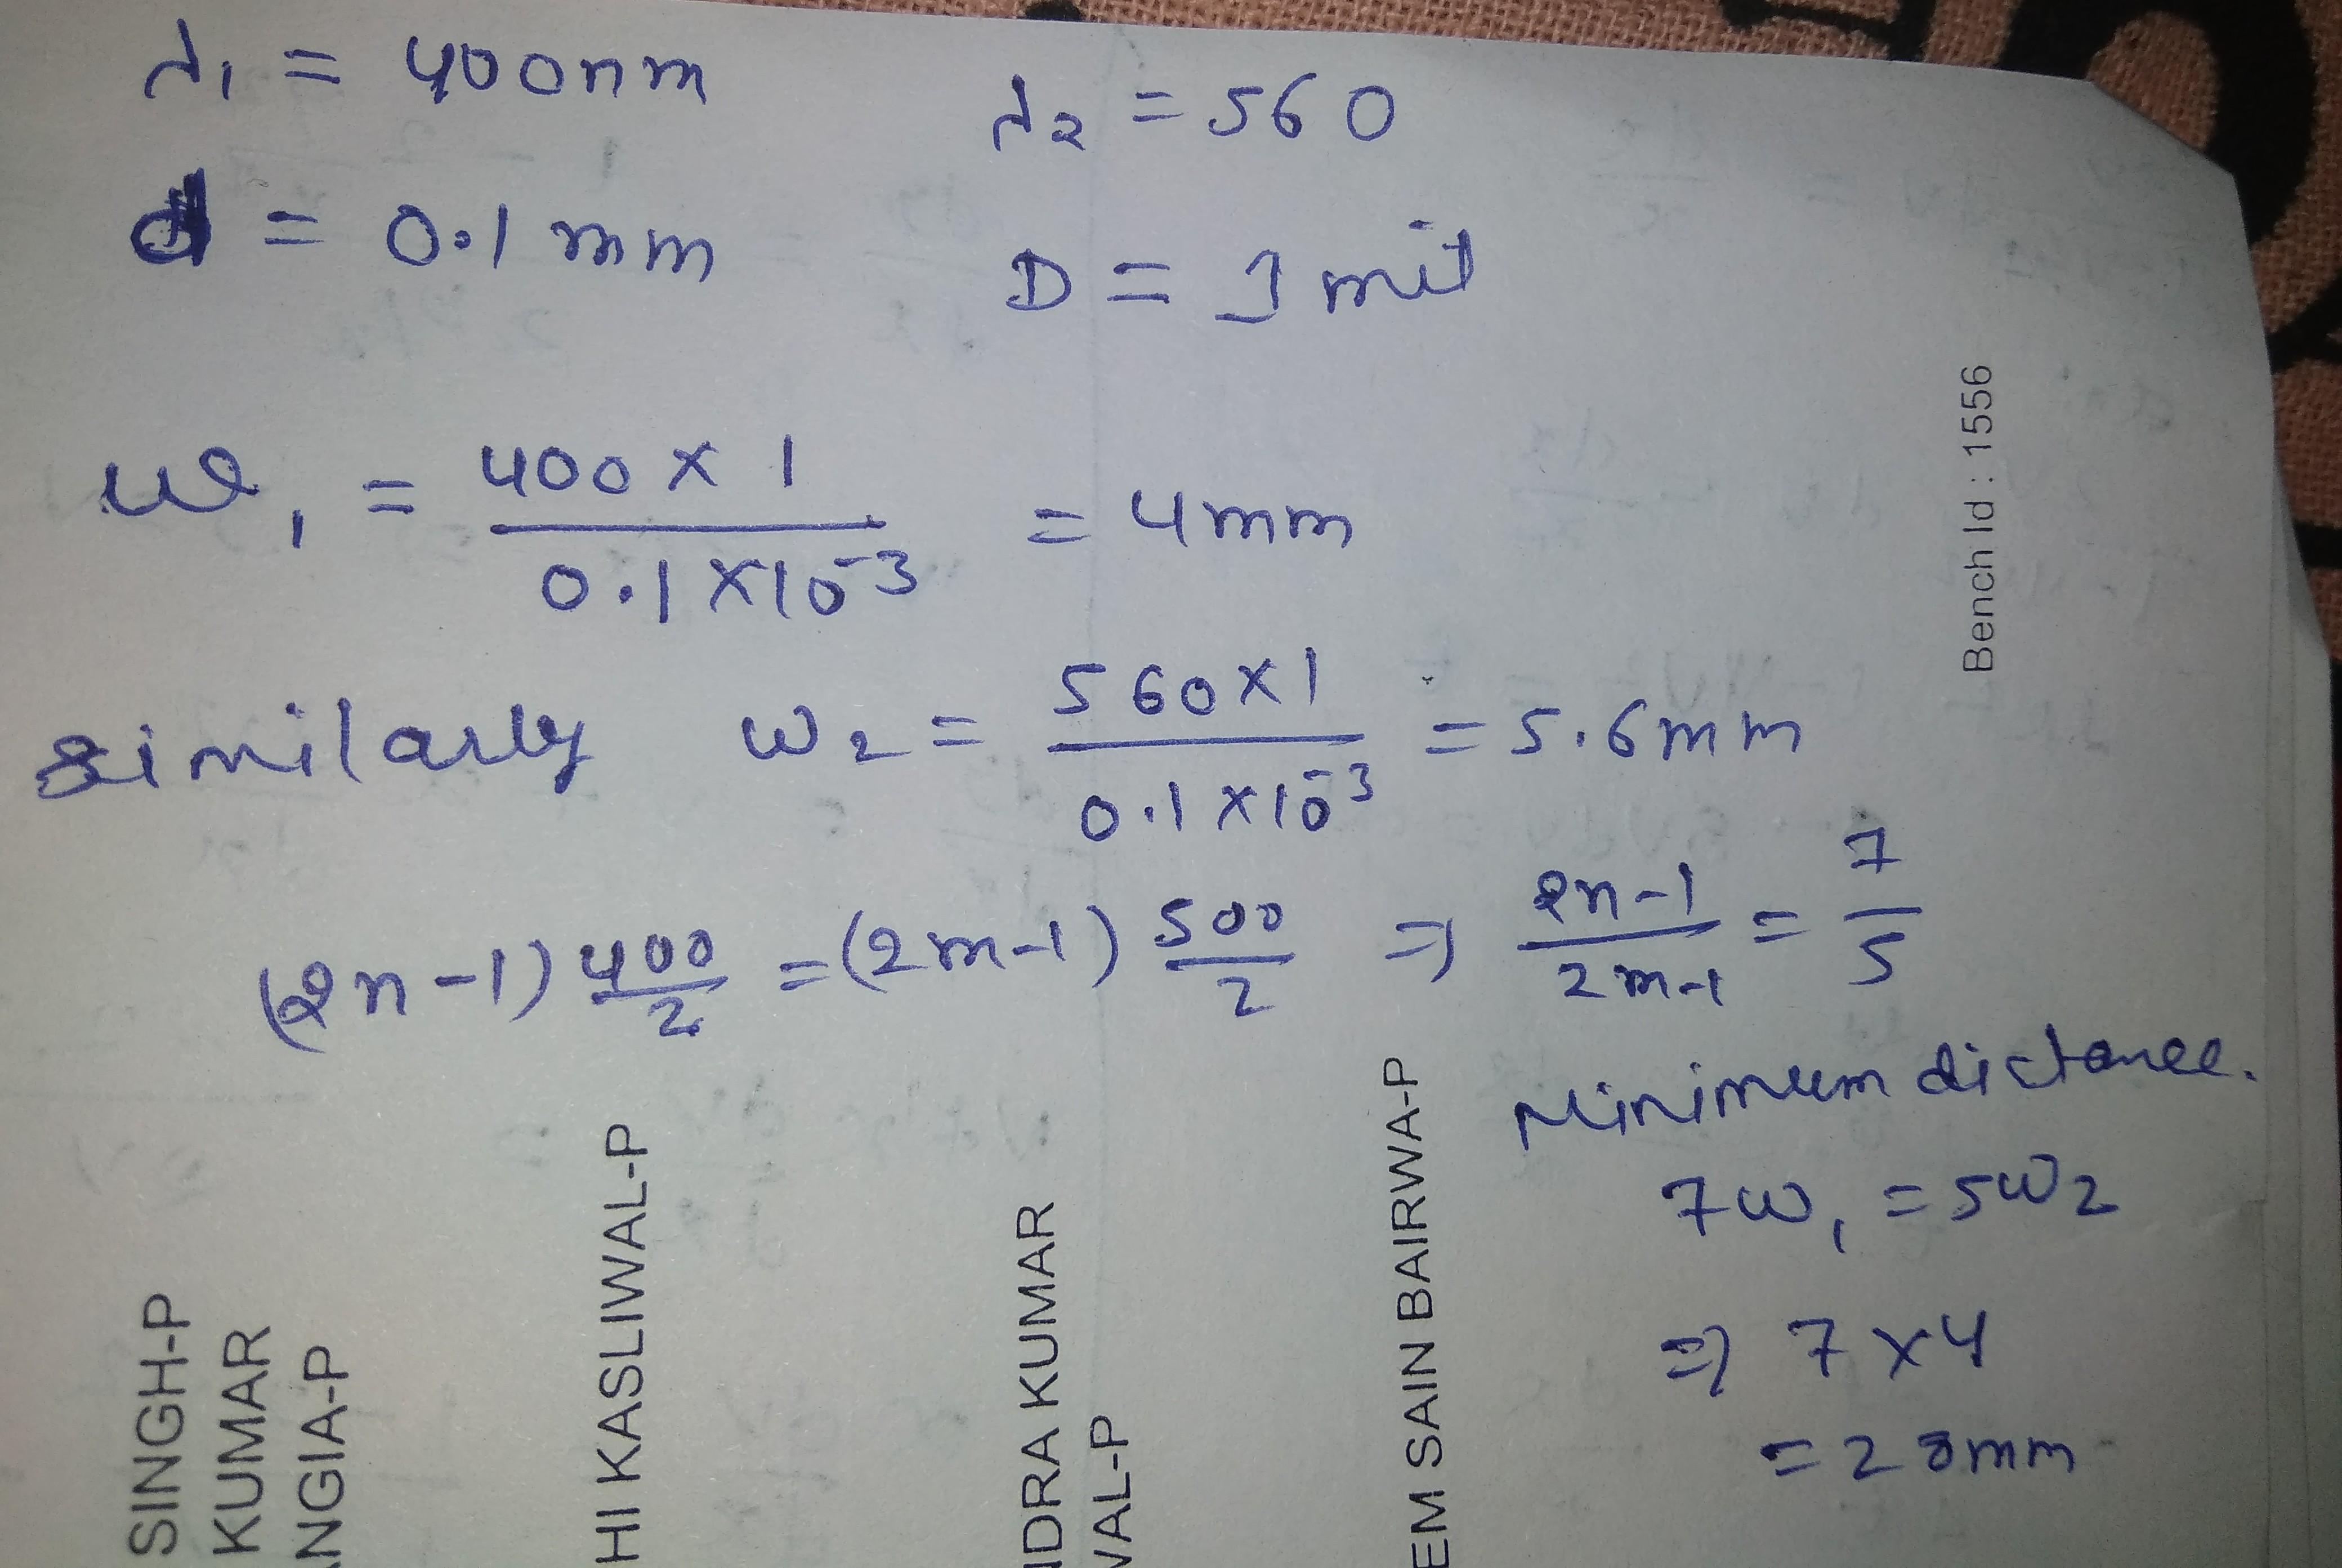 λ1 = 400nm λ2 = 560
d = 0.1 mm D = 1 mit
ω1 = 400 × 1 / 0.1 × 10^-3 = 4mm
similarly ω2 = 560×1 / 0.1 ×10^-3 = 5.6mm
(2n-1) 400/2 = (2m-1) 500/2 ⇒ 2n-1 / 2m-1 = 7/5
Minimum distance.
7ω1 = 5ω2
⇒ 7 × 4
= 28mm
Bench Id : 1556
SINGH-P
KUMAR
ANGIA-P
HI KASLIWAL-P
NDRA KUMAR
WAL-P
EM SAIN BAIRWA-P